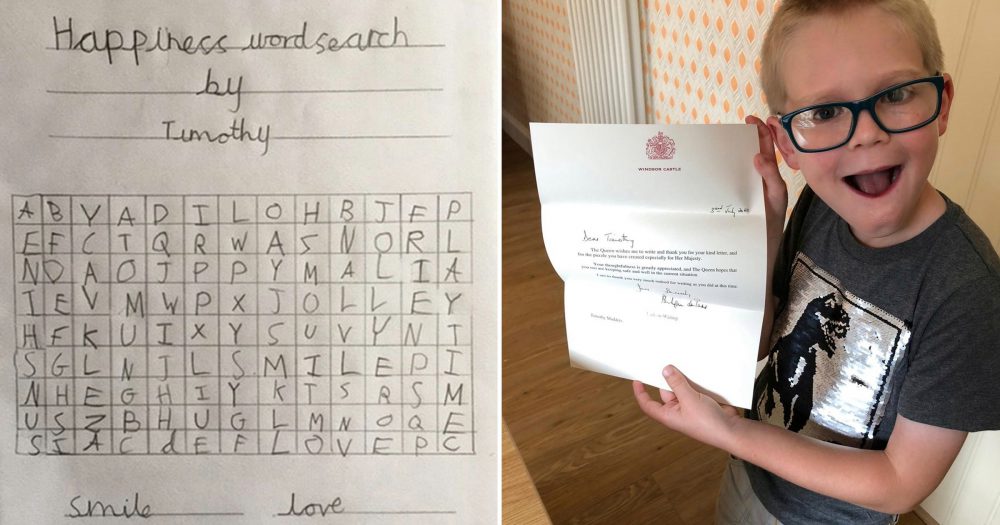 Happiness wordsearch
by
Timothy
A B V A D I L O H B J F P
E F C T Q R W A S N O R L
N D A O J P P Y M A L I A
I E V M W P X J O L L E Y
H F K U I X Y S U V Y N T
S G L N J L S M I L E P I
N H E G H I Y K T S R S M
U S Z B H U G L M N O Q E
S I A C d E F L O V E P C
smile love
WINDSOR CASTLE
Dear Timothy
The Queen wishes me to write and thank you for your kind letter, and
for the puzzle you have created especially for Her Majesty.
Your thoughtfulness is greatly appreciated, and The Queen hopes that
you are keeping safe and well in the current situation.
I am to thank you very much indeed for writing as you did at this time
Timothy Madders